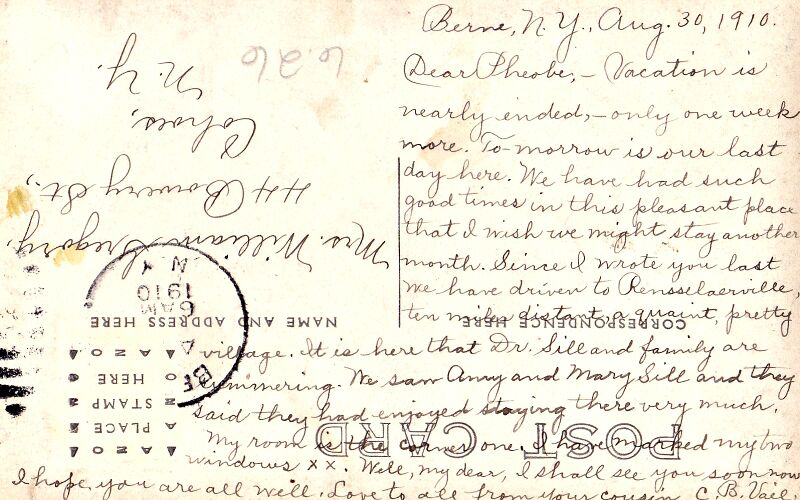 Berne, N.Y., Aug. 30, 1910.
Dear Pheobe, - Vacation is
nearly ended, - only one week
more. To-morrow is our last
day here. We have had such
good times in this pleasant place
that I wish we might stay another
month. Since I wrote you last
we have driven to Rensselaerville,
ten miles distant, a quaint, pretty
village. It is here that Dr. Sill and family are
summering. We saw Amy and Mary Sill and they
said they had enjoyed staying there very much.
My room is the corner one. I have marked my two
windows xx. Well, my dear, I shall see you soon now
I hope you are all well. Love to all from your cousin C. B. Vail
POST CARD
CORRESPONDENCE HERE
NAME AND ADDRESS HERE
AZO AZO
PLACE
STAMP
HERE
AZO AZO
6 AM
1910
N.Y.
Mrs. William Gregory,
44 Bowery St.,
Cohoes,
N.Y.
626